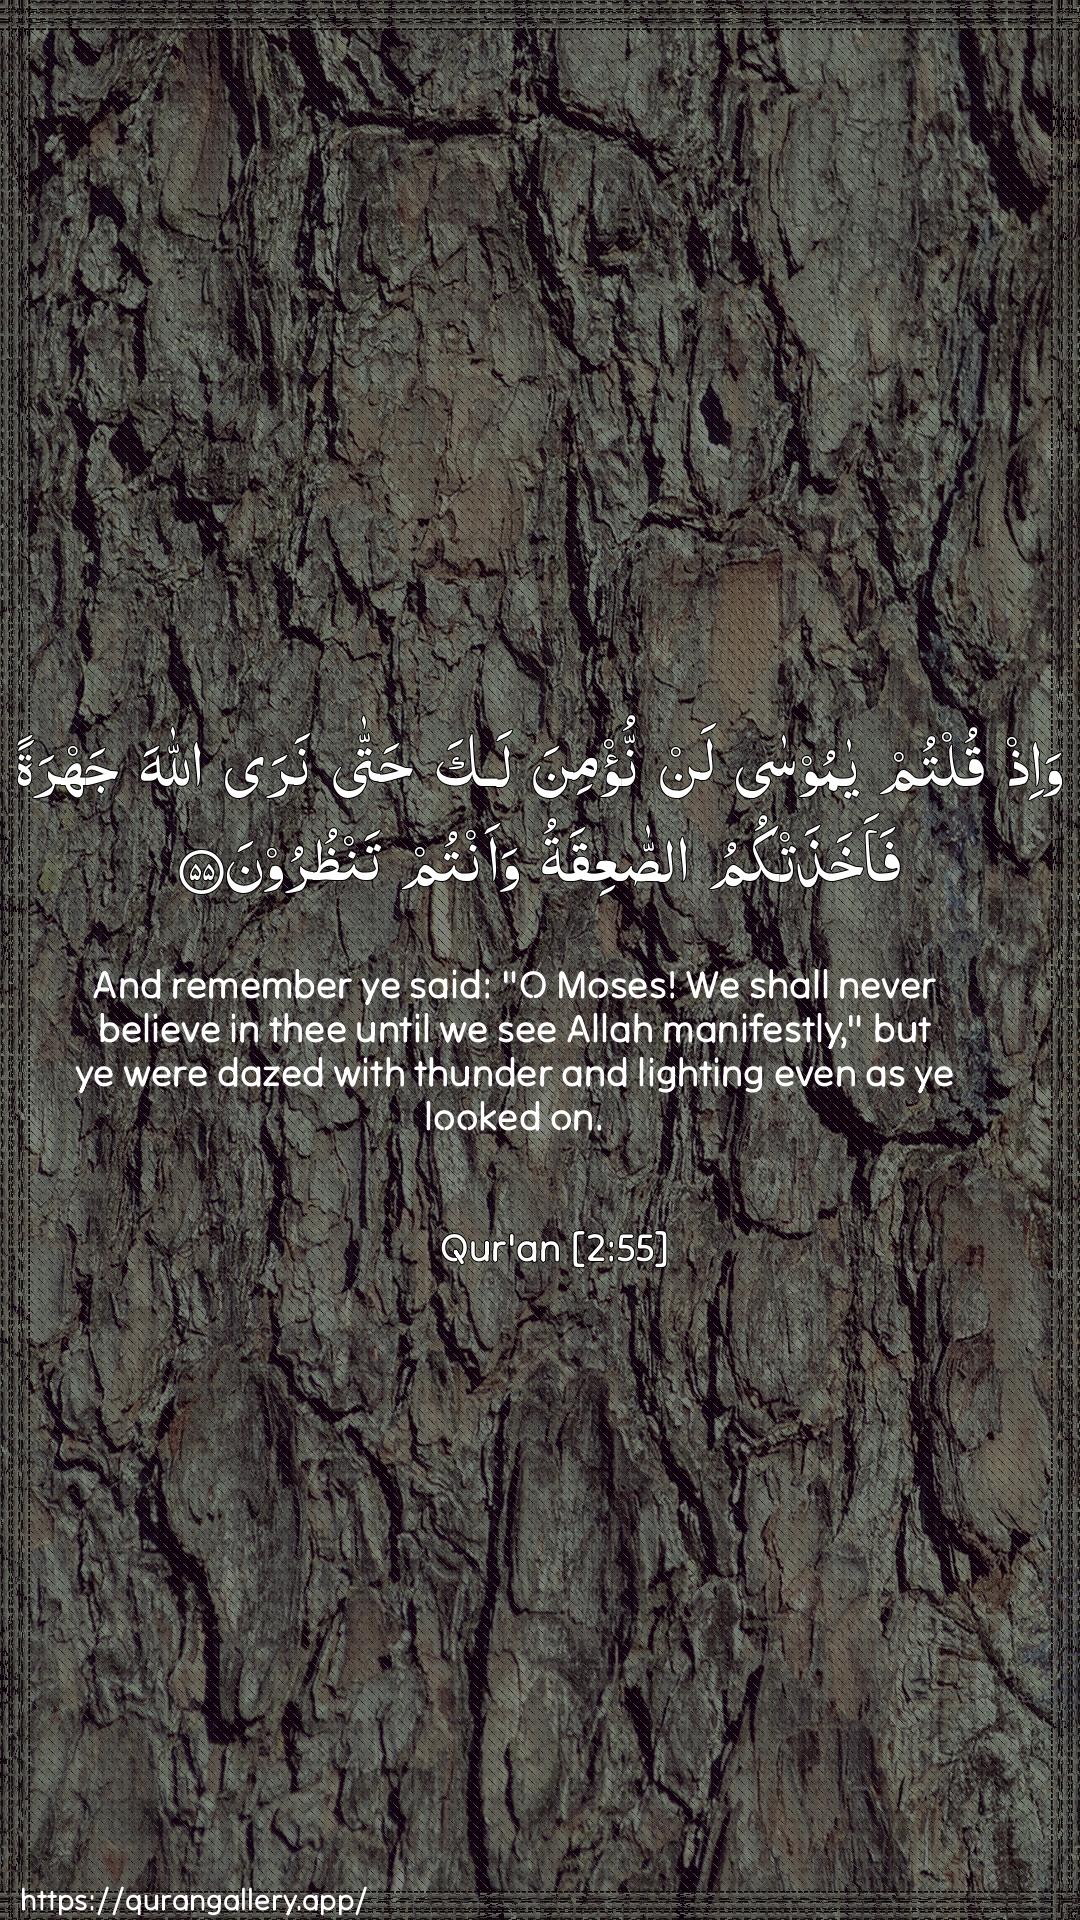 وَاِذْ قُلْتُمْ يٰمُوْسٰى لَنْ نُّؤْمِنَ لَـكَ حَتّٰى نَرَى اللّٰهَ جَهْرَةً
فَاَخَذَتْكُمُ الصّٰعِقَةُ وَاَنْتُمْ تَنْظُرُوْنَ ۝٥٥
And remember ye said: "O Moses! We shall never
believe in thee until we see Allah manifestly," but
ye were dazed with thunder and lighting even as ye
looked on.
Qur'an [2:55]
https://qurangallery.app/